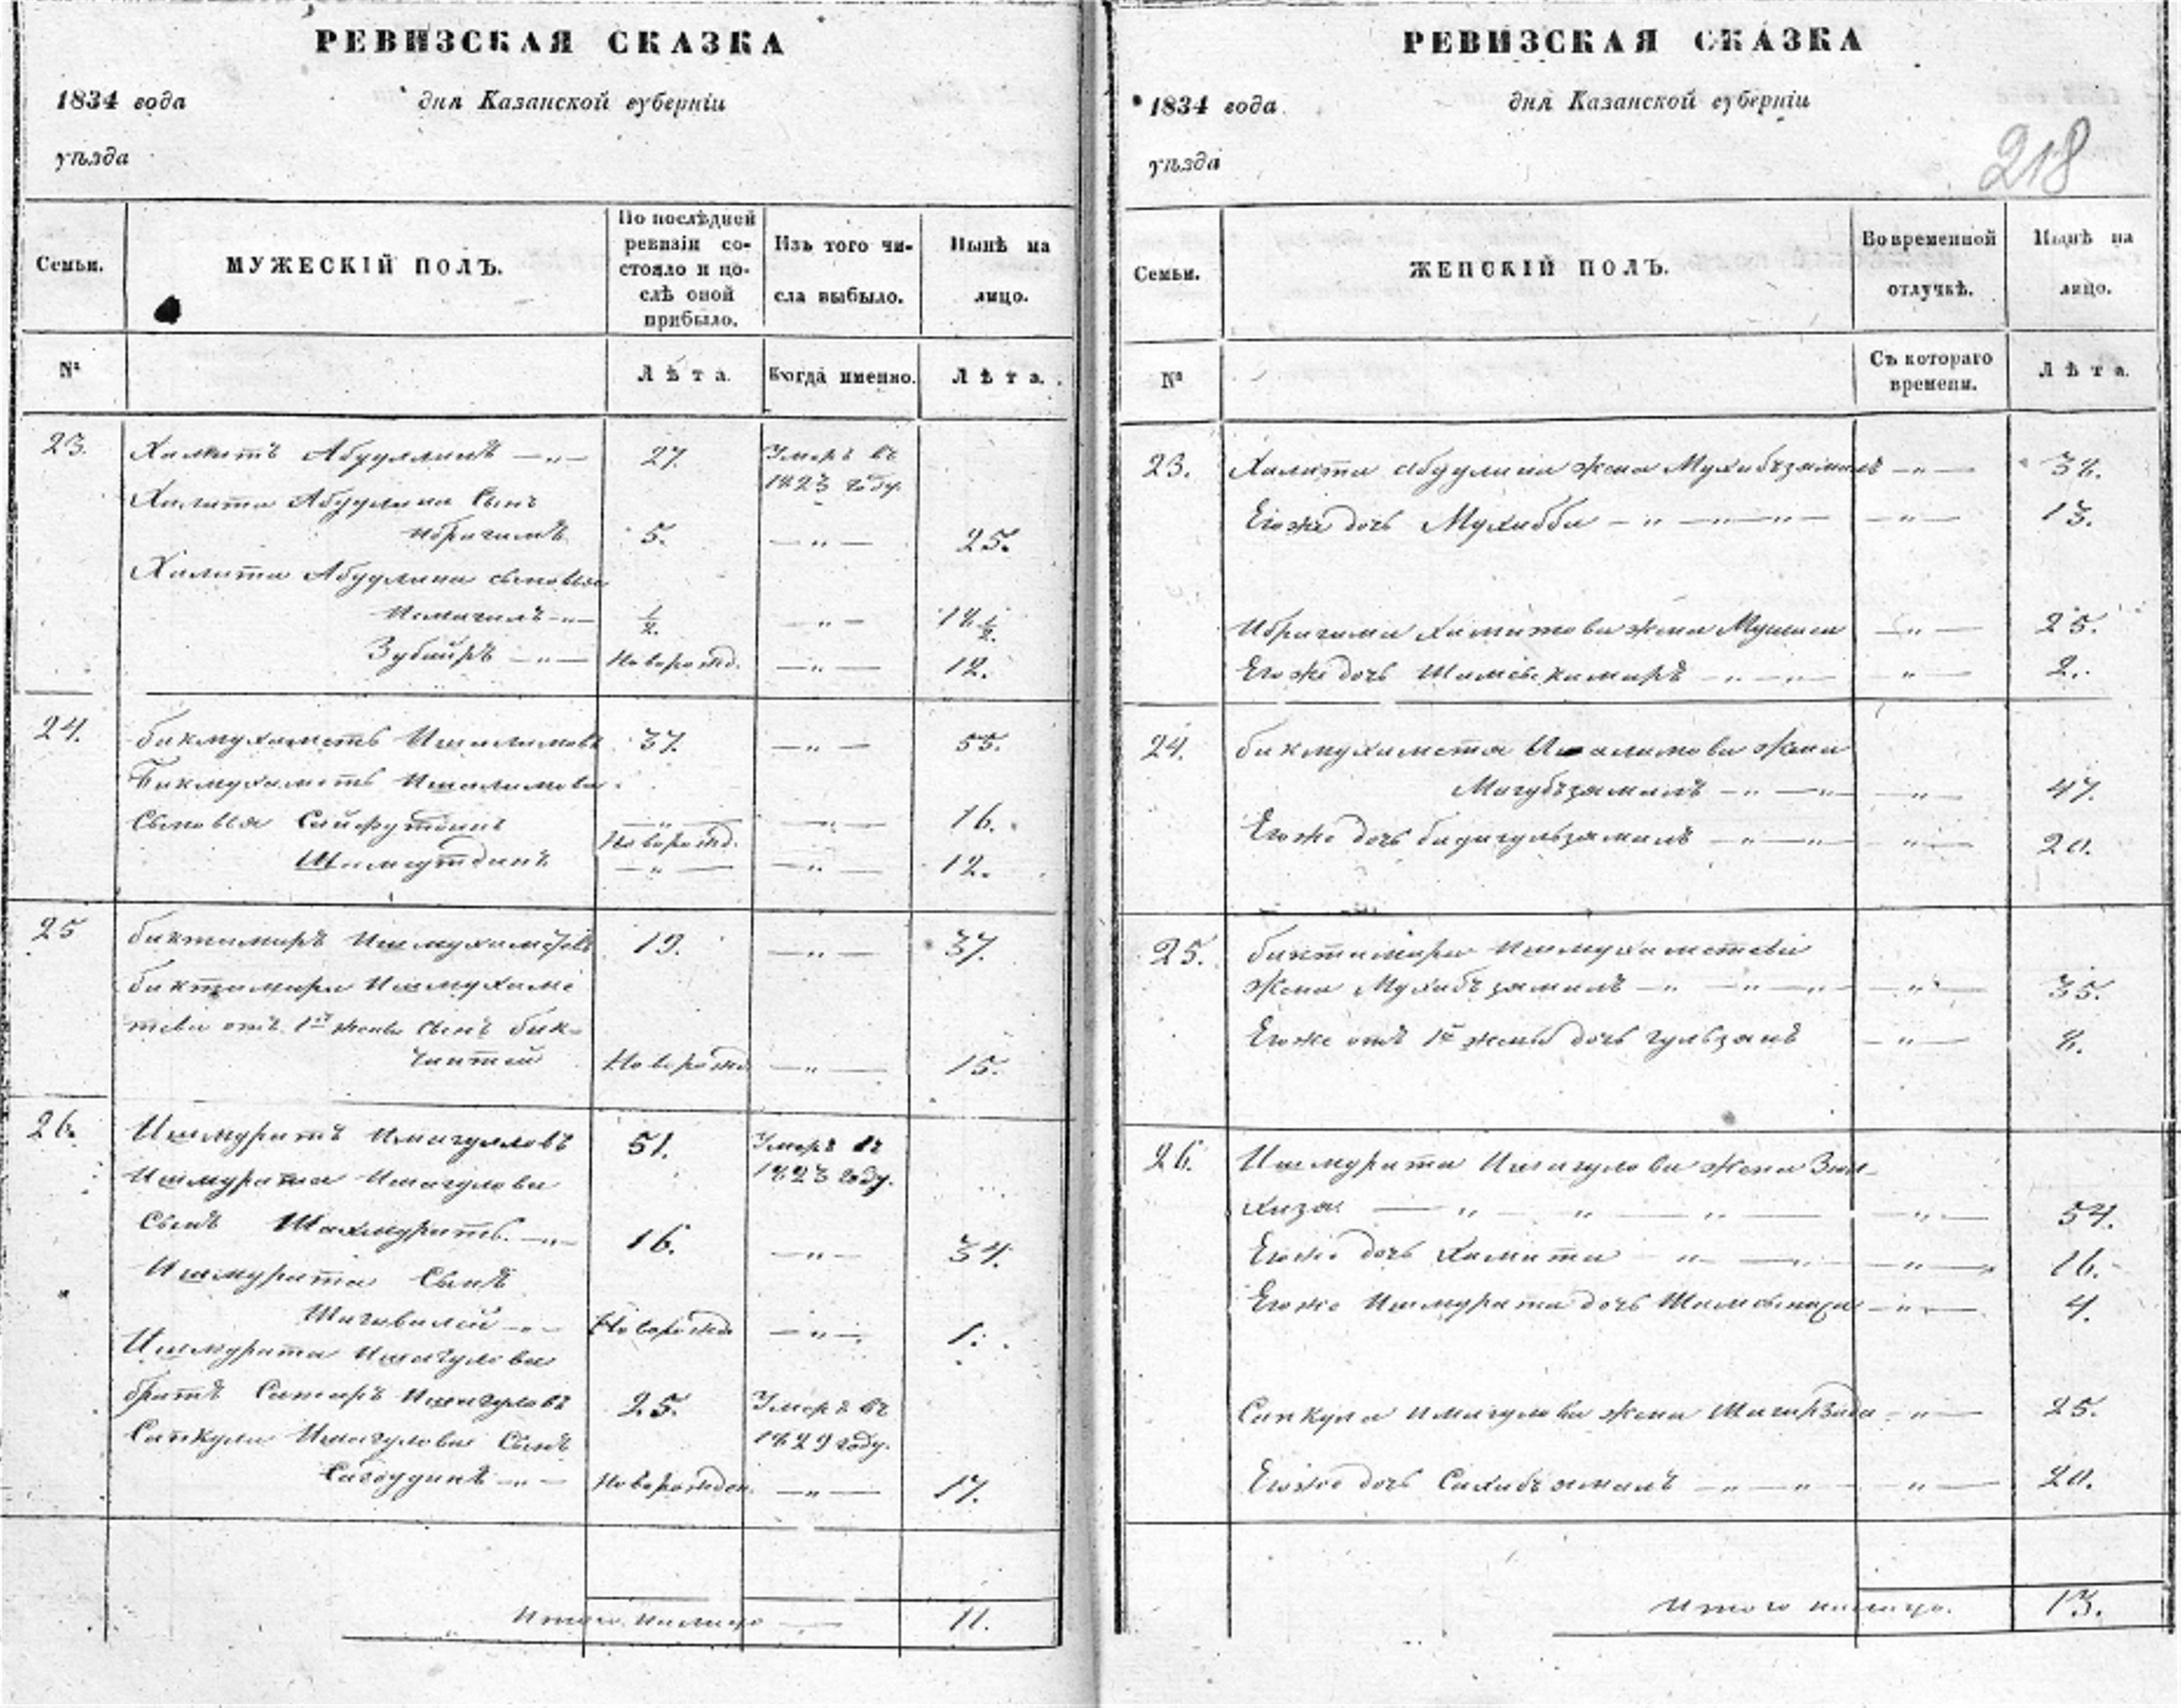 РЕВИЗСКАЯ СКАЗКА
1834 года дня Казанской губерніи
уѣзда
Семьи. МУЖЕСКІЙ ПОЛЪ. По послѣдней ревизіи состояло и послѣ оной прибыло. Изъ того числа выбыло. Нынѣ на лицо.
№ Лѣта. Когда именно. Лѣта.
23. Халитъ Абдуллинъ — „ — 27. Умеръ въ
1823 году.
Халита Абдулина Сынъ
Ибрагимъ 5. — „ — 25.
Халита Абдулина сыновья
Исмагилъ — „ — ½. — „ — 18½.
Зубаиръ — „ — Новорожд. — „ — 12.
24. бикмухаметъ Ишалимовъ 37. — „ — 55.
Бикмухаметъ Ишалимова
Сыновья Сайфутдинъ — „ — — „ — 16.
Новорожд.
Шамсутдинъ — „ — — „ — 12.
25 биктимиръ Ишмухаметевъ 19. — „ — 37.
биктимира Ишмухаме
тева отъ 1й жены сынъ бик-
чантай Новорожд — „ — 15.
26. Ишмуратъ Имагуловъ 51. Умеръ въ
1823 году.
Ишмурата Имагулова
Сынъ Шахмуратъ. — „ — 16. — „ — 34.
Ишмурата Сынъ
Шагивалей — „ — Новорожд — „ — 1.
Ишмурата Имагулова
братъ Сапкаръ Имагуловъ 25. Умеръ въ
1829 году.
Сапкула Имагулова Сынъ
Сагодушъ — „ — Новорожден. — „ — 17.
Итого налицо — 11.
РЕВИЗСКАЯ СКАЗКА
1834 года дня Казанской губерніи
уѣзда
218
Семьи. ЖЕНСКІЙ ПОЛЪ. Во временной отлучкѣ. Нынѣ на лицо.
№ Съ котораго времени. Лѣта.
23. Халита Абдулина жена Мухибъзямалъ — „ — 38.
Егоже дочь Мухибба — „ — „ — — „ — 13.
Ибрагима Халитова жена — „ — 25.
Егоже дочь Шамсыкамаръ — „ — „ — „ — 2.
24. бикмухамета Ишалимова жена
Магубъзямалъ — „ — „ — „ — 47.
Егоже дочь бадигульзямалъ — „ — „ — „ — 20.
25. биктимира Ишмухаметева
жена Мухибъзямалъ — „ — „ — „ — „ — 35.
Егоже отъ 1й жены дочь гульзянъ — „ — 8.
26. Ишмурата Имагулова жена Зюл-
хиза. — „ — „ — „ — „ — 54.
Егоже дочь Хамита — „ — „ — „ — 16.
Егоже Ишмурата дочь — „ — 4.
Сапкула Имагулова жена Шагирзада — „ — 25.
Егоже дочь Сахибъямалъ — „ — „ — „ — 20.
Итого налицо. 13.